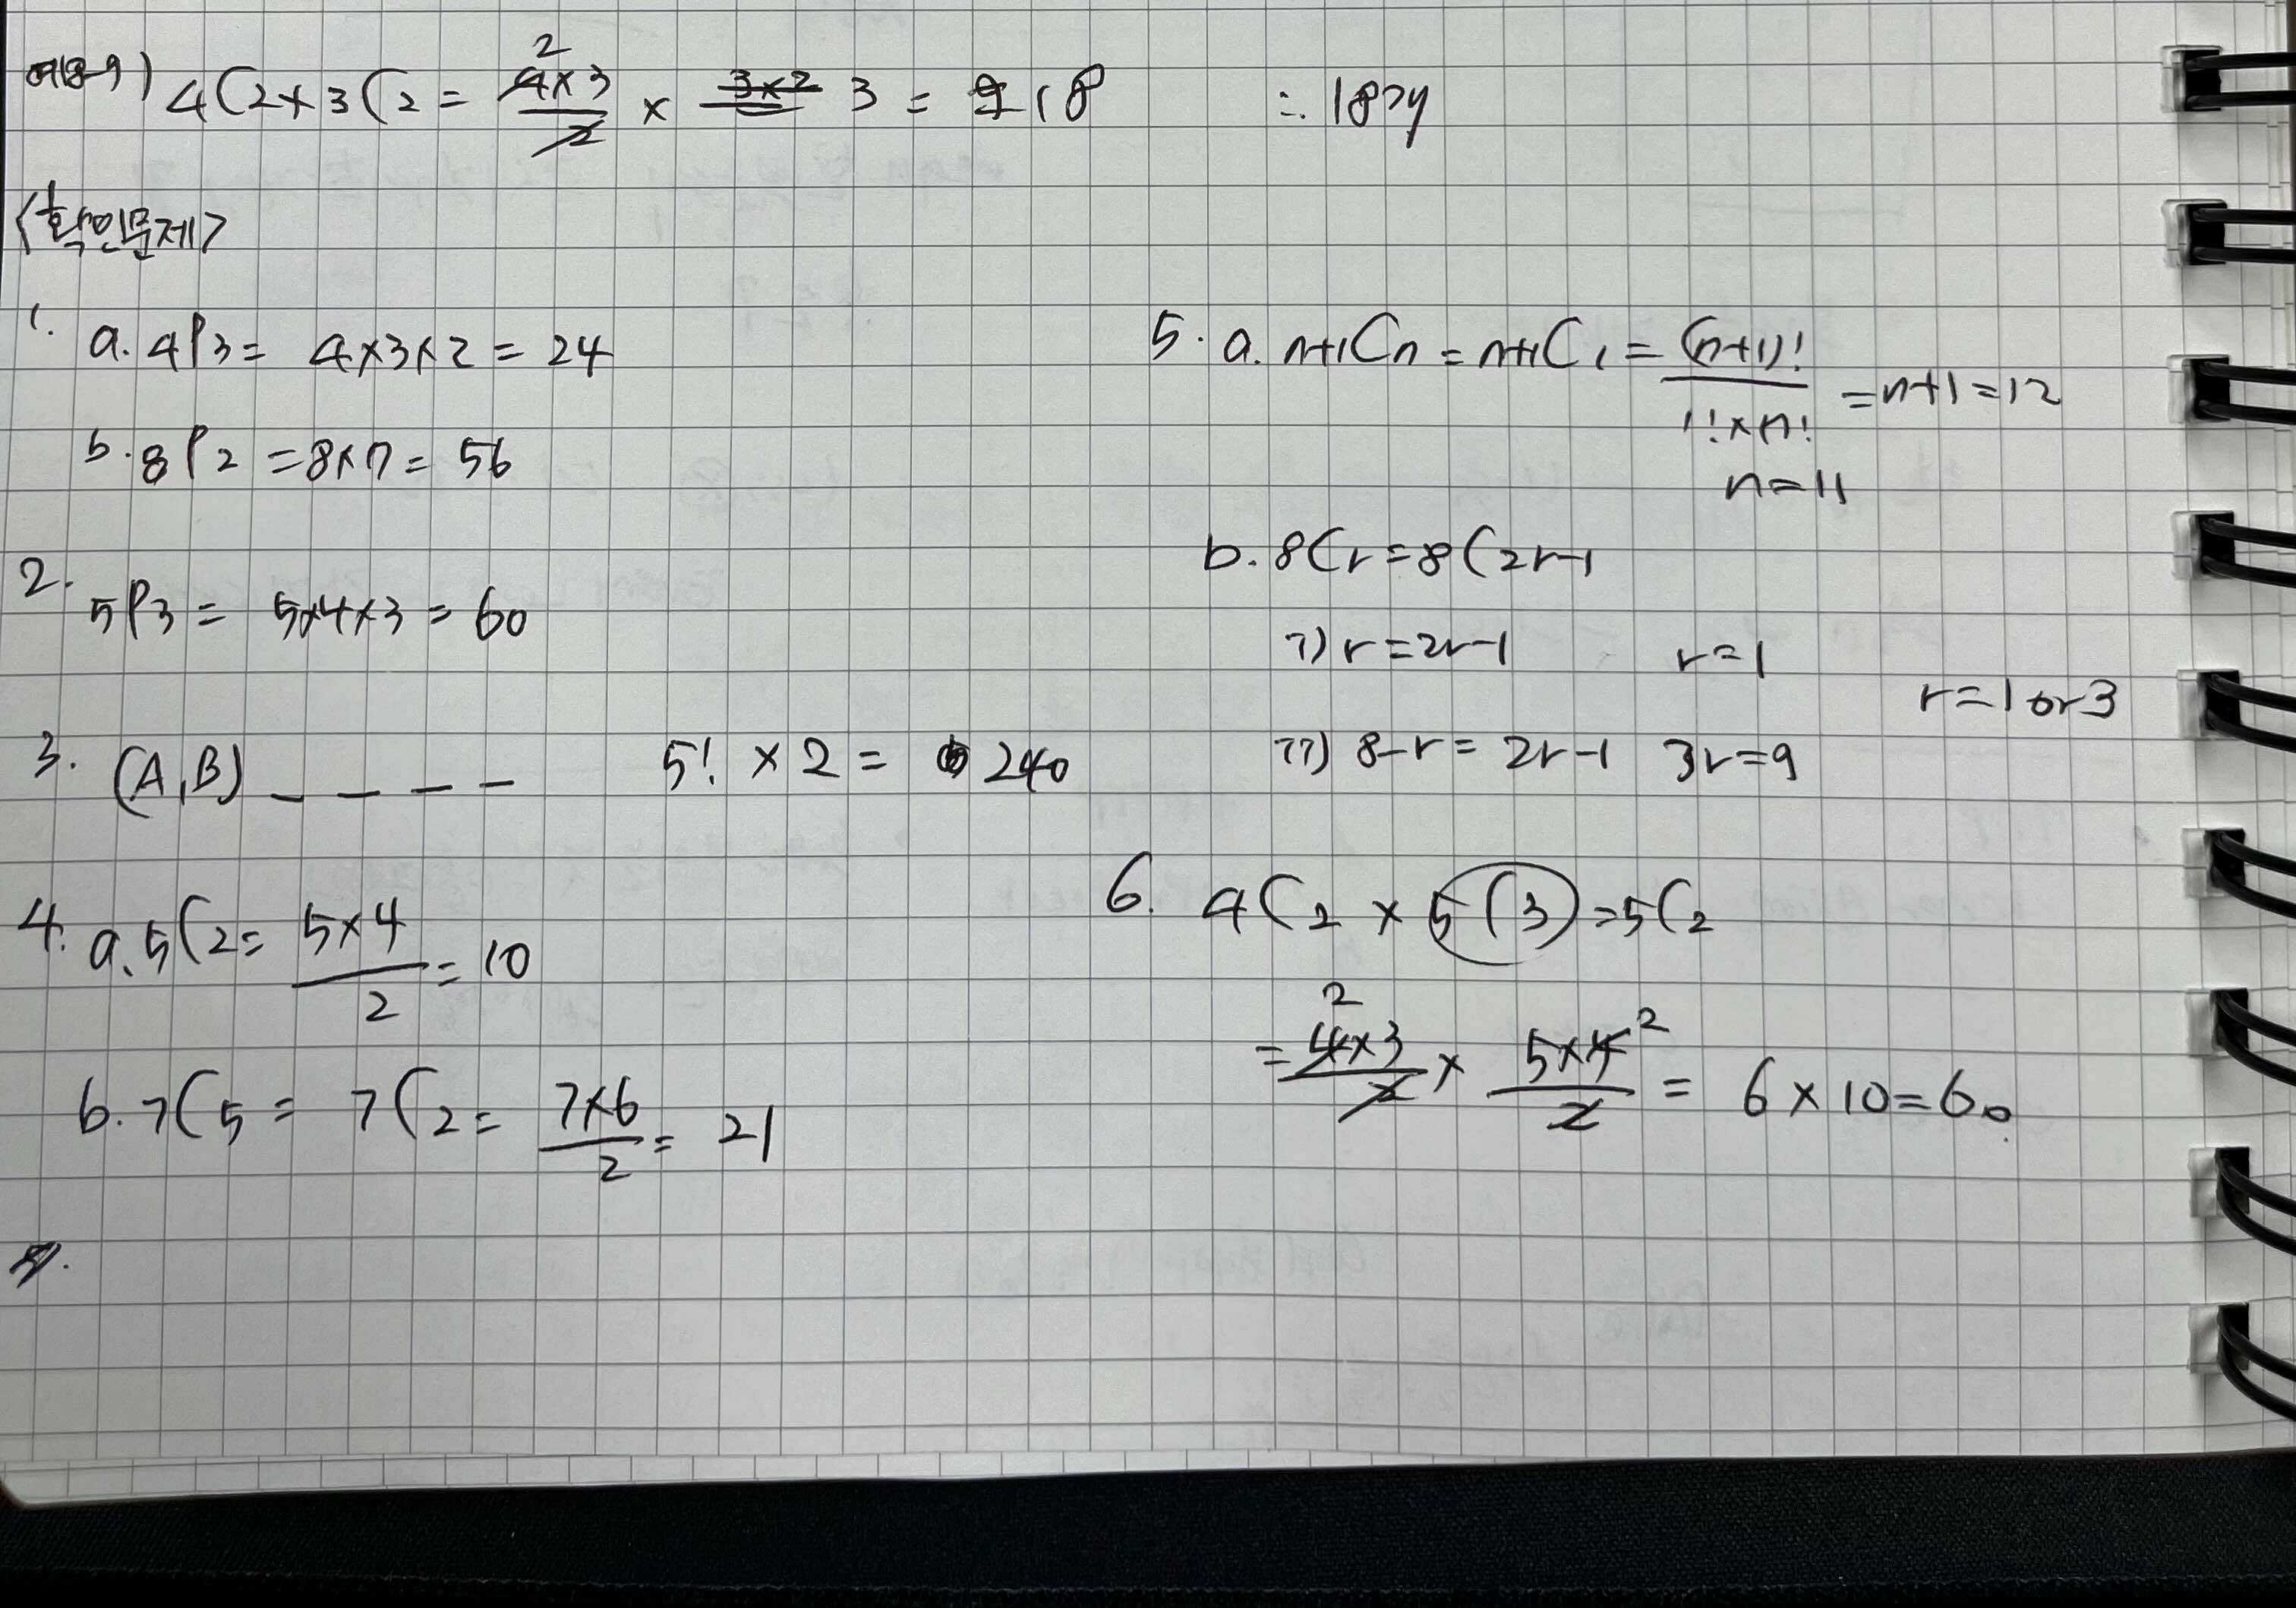 예8-9) 4C2 × 3C2 = 4×3/2 2 × 3×2 3 = 9 18 ∴ 18개
<확인문제>
1. a. 4P3 = 4×3×2 = 24
b. 8P2 = 8×7 = 56
2. 5P3 = 5×4×3 = 60
3. (A,B) _ _ _ _ 5! × 2 = 240
4. a. 5C2 = 5×4/2 = 10
b. 7C5 = 7C2 = 7×6/2 = 21
5. a. n+1Cn = n+1C1 = (n+1)!/1!×n! = n+1 = 12
n=11
b. 8Cr = 8C2r-1
i) r=2r-1 r=1
r=1 or 3
ii) 8-r = 2r-1 3r=9
6. 4C2 × 5C3 = 5C2
= 4×3/2 2 × 5×4/2 2 = 6 × 10 = 60